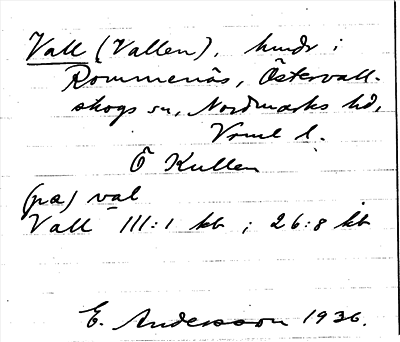 Vall (Vallen), hmdr i
Rommenäs, Östervall-
skogs sn, Nordmarks hd,
Vrml l.
Ö Kullen
(pa) val
Vall III:1 kb ; 26:8 kb
E. Andersson 1936.